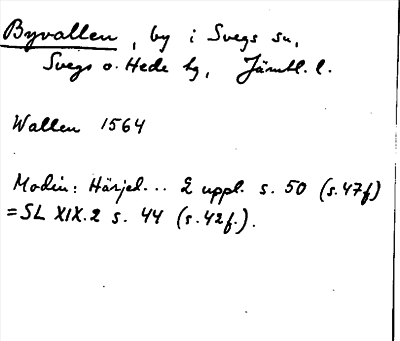 Byvallen, by i Svegs sn,
Svegs o. Hede tg, Jämtl. l.
Wallen 1564
Modin: Härjed... 2 uppl. s. 50 (s.47f)
=SL XIX.2 s. 44 (s.42f.).